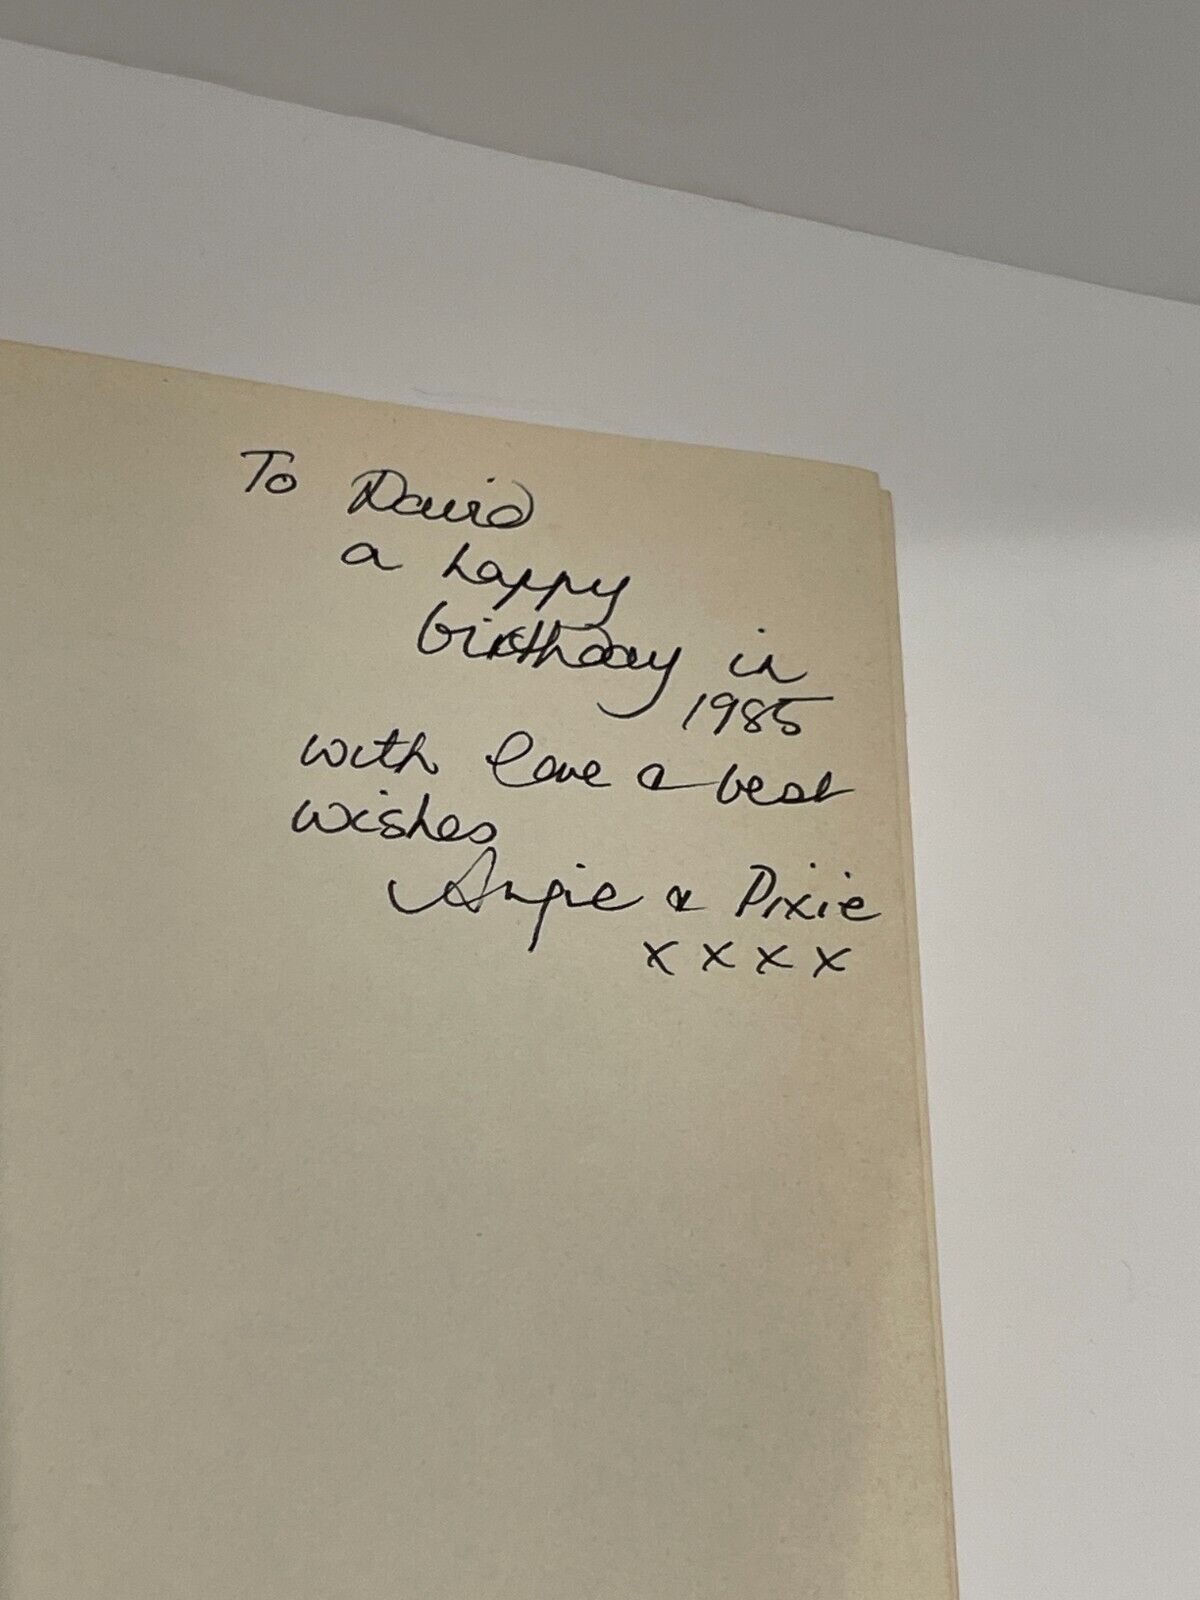 To David
a happy
birthday in
1985
with love & best
wishes
Angie & Pixie
x x x x